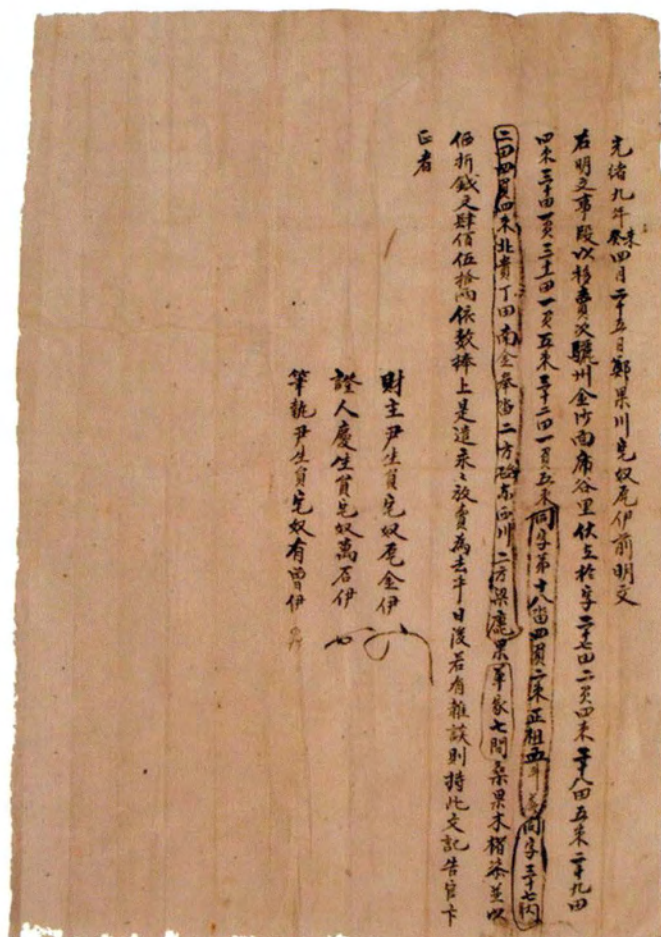 光緖九年癸未四月二十五日鄭果川宅奴尾伊前明文
右明文事段以移買次驪州金沙面席谷里伏在於字二十七田二負四束二十八田五束二十九田
四束三十田一負三十一田一負五束三十二田一負五束同字第十八畓四負二束正租五斗 同字三十七內
二田四負四束北貴丁田南金奉畓二方 川二方 果草家七間桑果木楮 並以
価折錢文肆佰伍拾兩依數捧上是遣永永放賣爲去乎日後若有雜談則持此文記告官卞
正者
財主尹生員宅奴尾金伊
證人慶生員宅奴萬石伊
筆執尹生員宅奴有曾伊